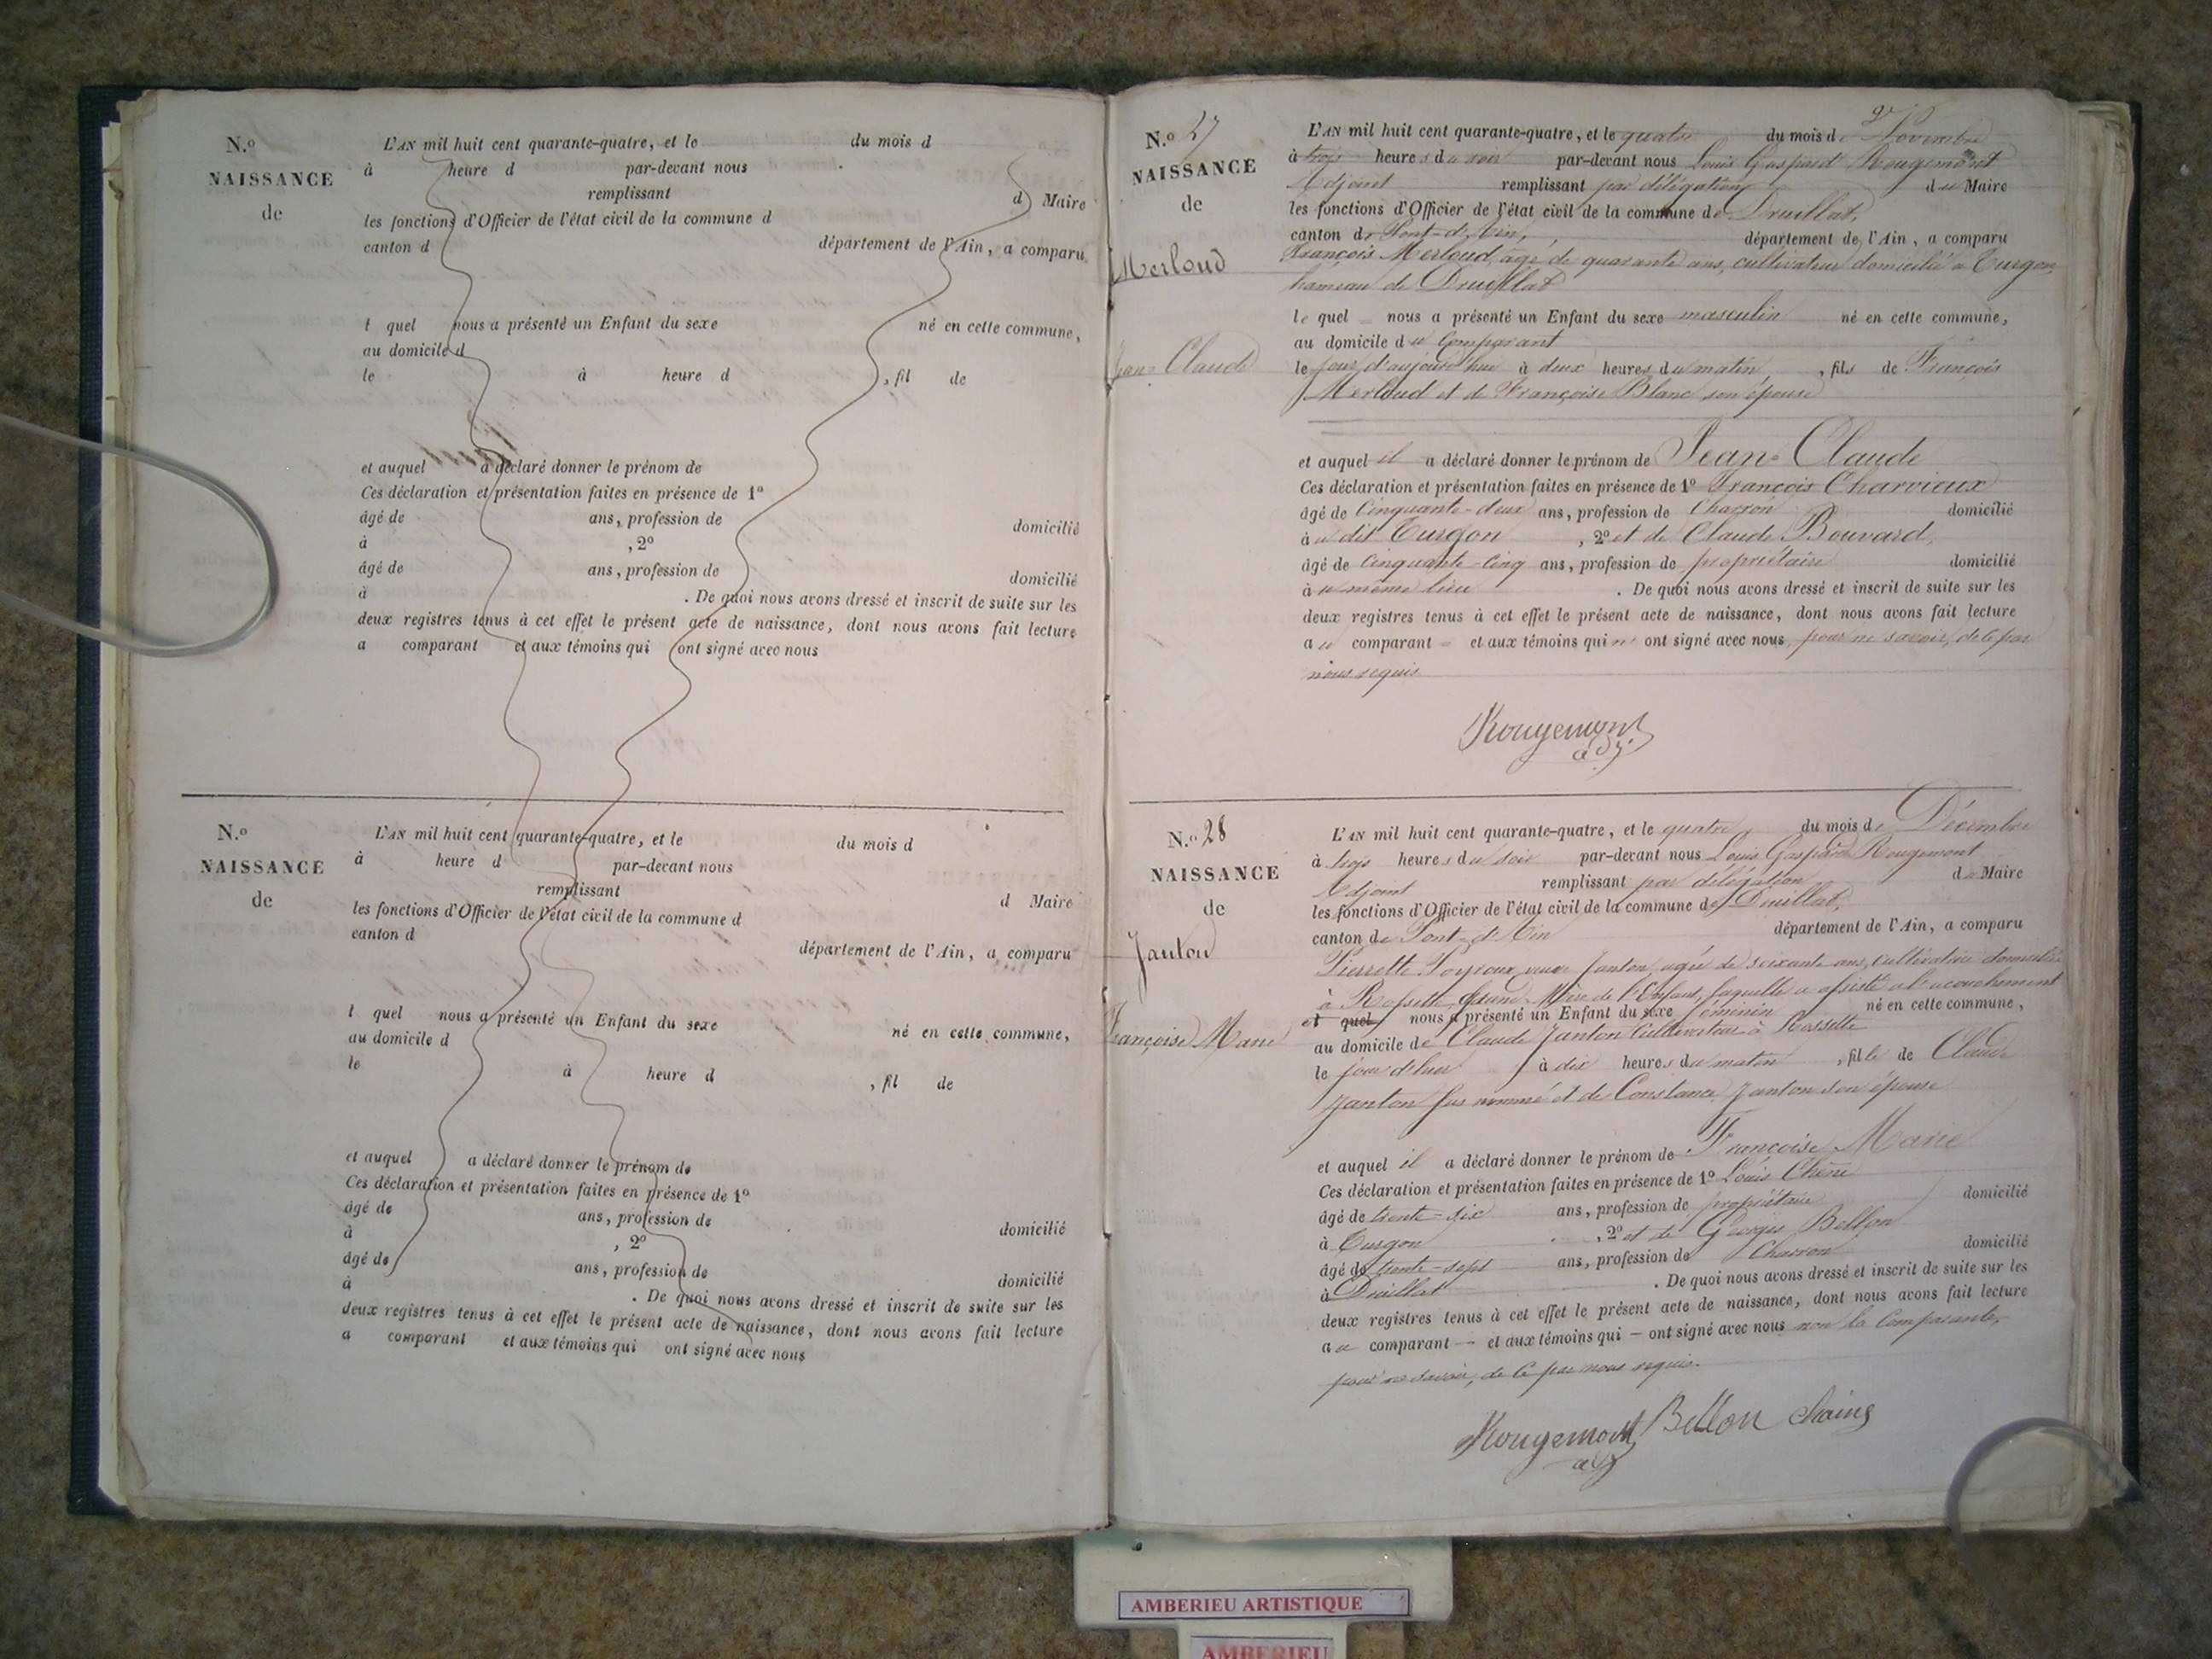 N.º
NAISSANCE
de
L'AN mil huit cent quarante-quatre, et le du mois d
à heure d par-devant nous
remplissant d Maire
les fonctions d'Officier de l'état civil de la commune d
canton d département de l'Ain, a comparu
l quel nous a présenté un Enfant du sexe né en cette commune,
au domicile d
le à heure d , fil de
et auquel a déclaré donner le prénom de
Ces déclaration et présentation faites en présence de 1º
âgé de ans, profession de domicilié
à , 2º
âgé de ans, profession de domicilié
à . De quoi nous avons dressé et inscrit de suite sur les
deux registres tenus à cet effet le présent acte de naissance, dont nous avons fait lecture
a comparant et aux témoins qui ont signé avec nous
N.º
NAISSANCE
de
L'AN mil huit cent quarante-quatre, et le du mois d
à heure d par-devant nous
remplissant d Maire
les fonctions d'Officier de l'état civil de la commune d
canton d département de l'Ain, a comparu
l quel nous a présenté un Enfant du sexe né en cette commune,
au domicile d
le à heure d , fil de
et auquel a déclaré donner le prénom de
Ces déclaration et présentation faites en présence de 1º
âgé de ans, profession de domicilié
à , 2º
âgé de ans, profession de domicilié
à . De quoi nous avons dressé et inscrit de suite sur les
deux registres tenus à cet effet le présent acte de naissance, dont nous avons fait lecture
a comparant et aux témoins qui ont signé avec nous
N.º 27
NAISSANCE
de
Merloud
Jean-Claude
L'AN mil huit cent quarante-quatre, et le quatre du mois de Novembre
à trois heures du soir par-devant nous Louis Gaspard Rougemont
Adjoint remplissant par délégation du Maire
les fonctions d'Officier de l'état civil de la commune de Druillat,
canton de Pont-d'Ain, département de l'Ain, a comparu
François Merloud, âgé de quarante ans, cultivateur domicilié à Turgon
hameau de Druillat
le quel nous a présenté un Enfant du sexe masculin né en cette commune,
au domicile du Comparant
le jour d'aujourd'hui à deux heures du matin, fils de François
Merloud et de Françoise Blanc son épouse
et auquel il a déclaré donner le prénom de Jean-Claude
Ces déclaration et présentation faites en présence de 1º François Charvieux
âgé de Cinquante-deux ans, profession de Charron domicilié
au dit Turgon , 2º et de Claude Bouvard,
âgé de Cinquante-Cinq ans, profession de propriétaire domicilié
au même lieu . De quoi nous avons dressé et inscrit de suite sur les
deux registres tenus à cet effet le présent acte de naissance, dont nous avons fait lecture
au comparant et aux témoins qui n' ont signé avec nous pour ne savoir, de ce par
nous requis
Rougemont
adj.
N.º 28
NAISSANCE
de
Janton
Françoise Marie
L'AN mil huit cent quarante-quatre, et le quatre du mois de Décembre
à trois heures du soir par-devant nous Louis Gaspard Rougemont
Adjoint remplissant par délégation du Maire
les fonctions d'Officier de l'état civil de la commune de Druillat,
canton de Pont-d'Ain département de l'Ain, a comparu
Pierrette veuve Janton, agée de soixante ans, cultivatrice domiciliée
à Rossette, Grand-Mère de l'Enfant, laquelle a assisté à l'acouchement
et quel nous a présenté un Enfant du sexe féminin né en cette commune,
au domicile de Claude Janton Cultivateur à Rossette
le jour d'hier à dix heures du matin , fille de Claude
Janton sus nommé et de Constance Janton son épouse
et auquel il a déclaré donner le prénom de Françoise Marie
Ces déclaration et présentation faites en présence de 1º Louis
âgé de trente-six ans, profession de propriétaire domicilié
à Turgon , 2º et de Georges Bellon
âgé de trente-sept ans, profession de Charron domicilié
à Druillat . De quoi nous avons dressé et inscrit de suite sur les
deux registres tenus à cet effet le présent acte de naissance, dont nous avons fait lecture
a comparant — et aux témoins qui — ont signé avec nous non la Comparante,
pour ne savoir, de ce par nous requis.
Rougemont Bellon
adj
AMBERIEU ARTISTIQUE
AMBERIEU